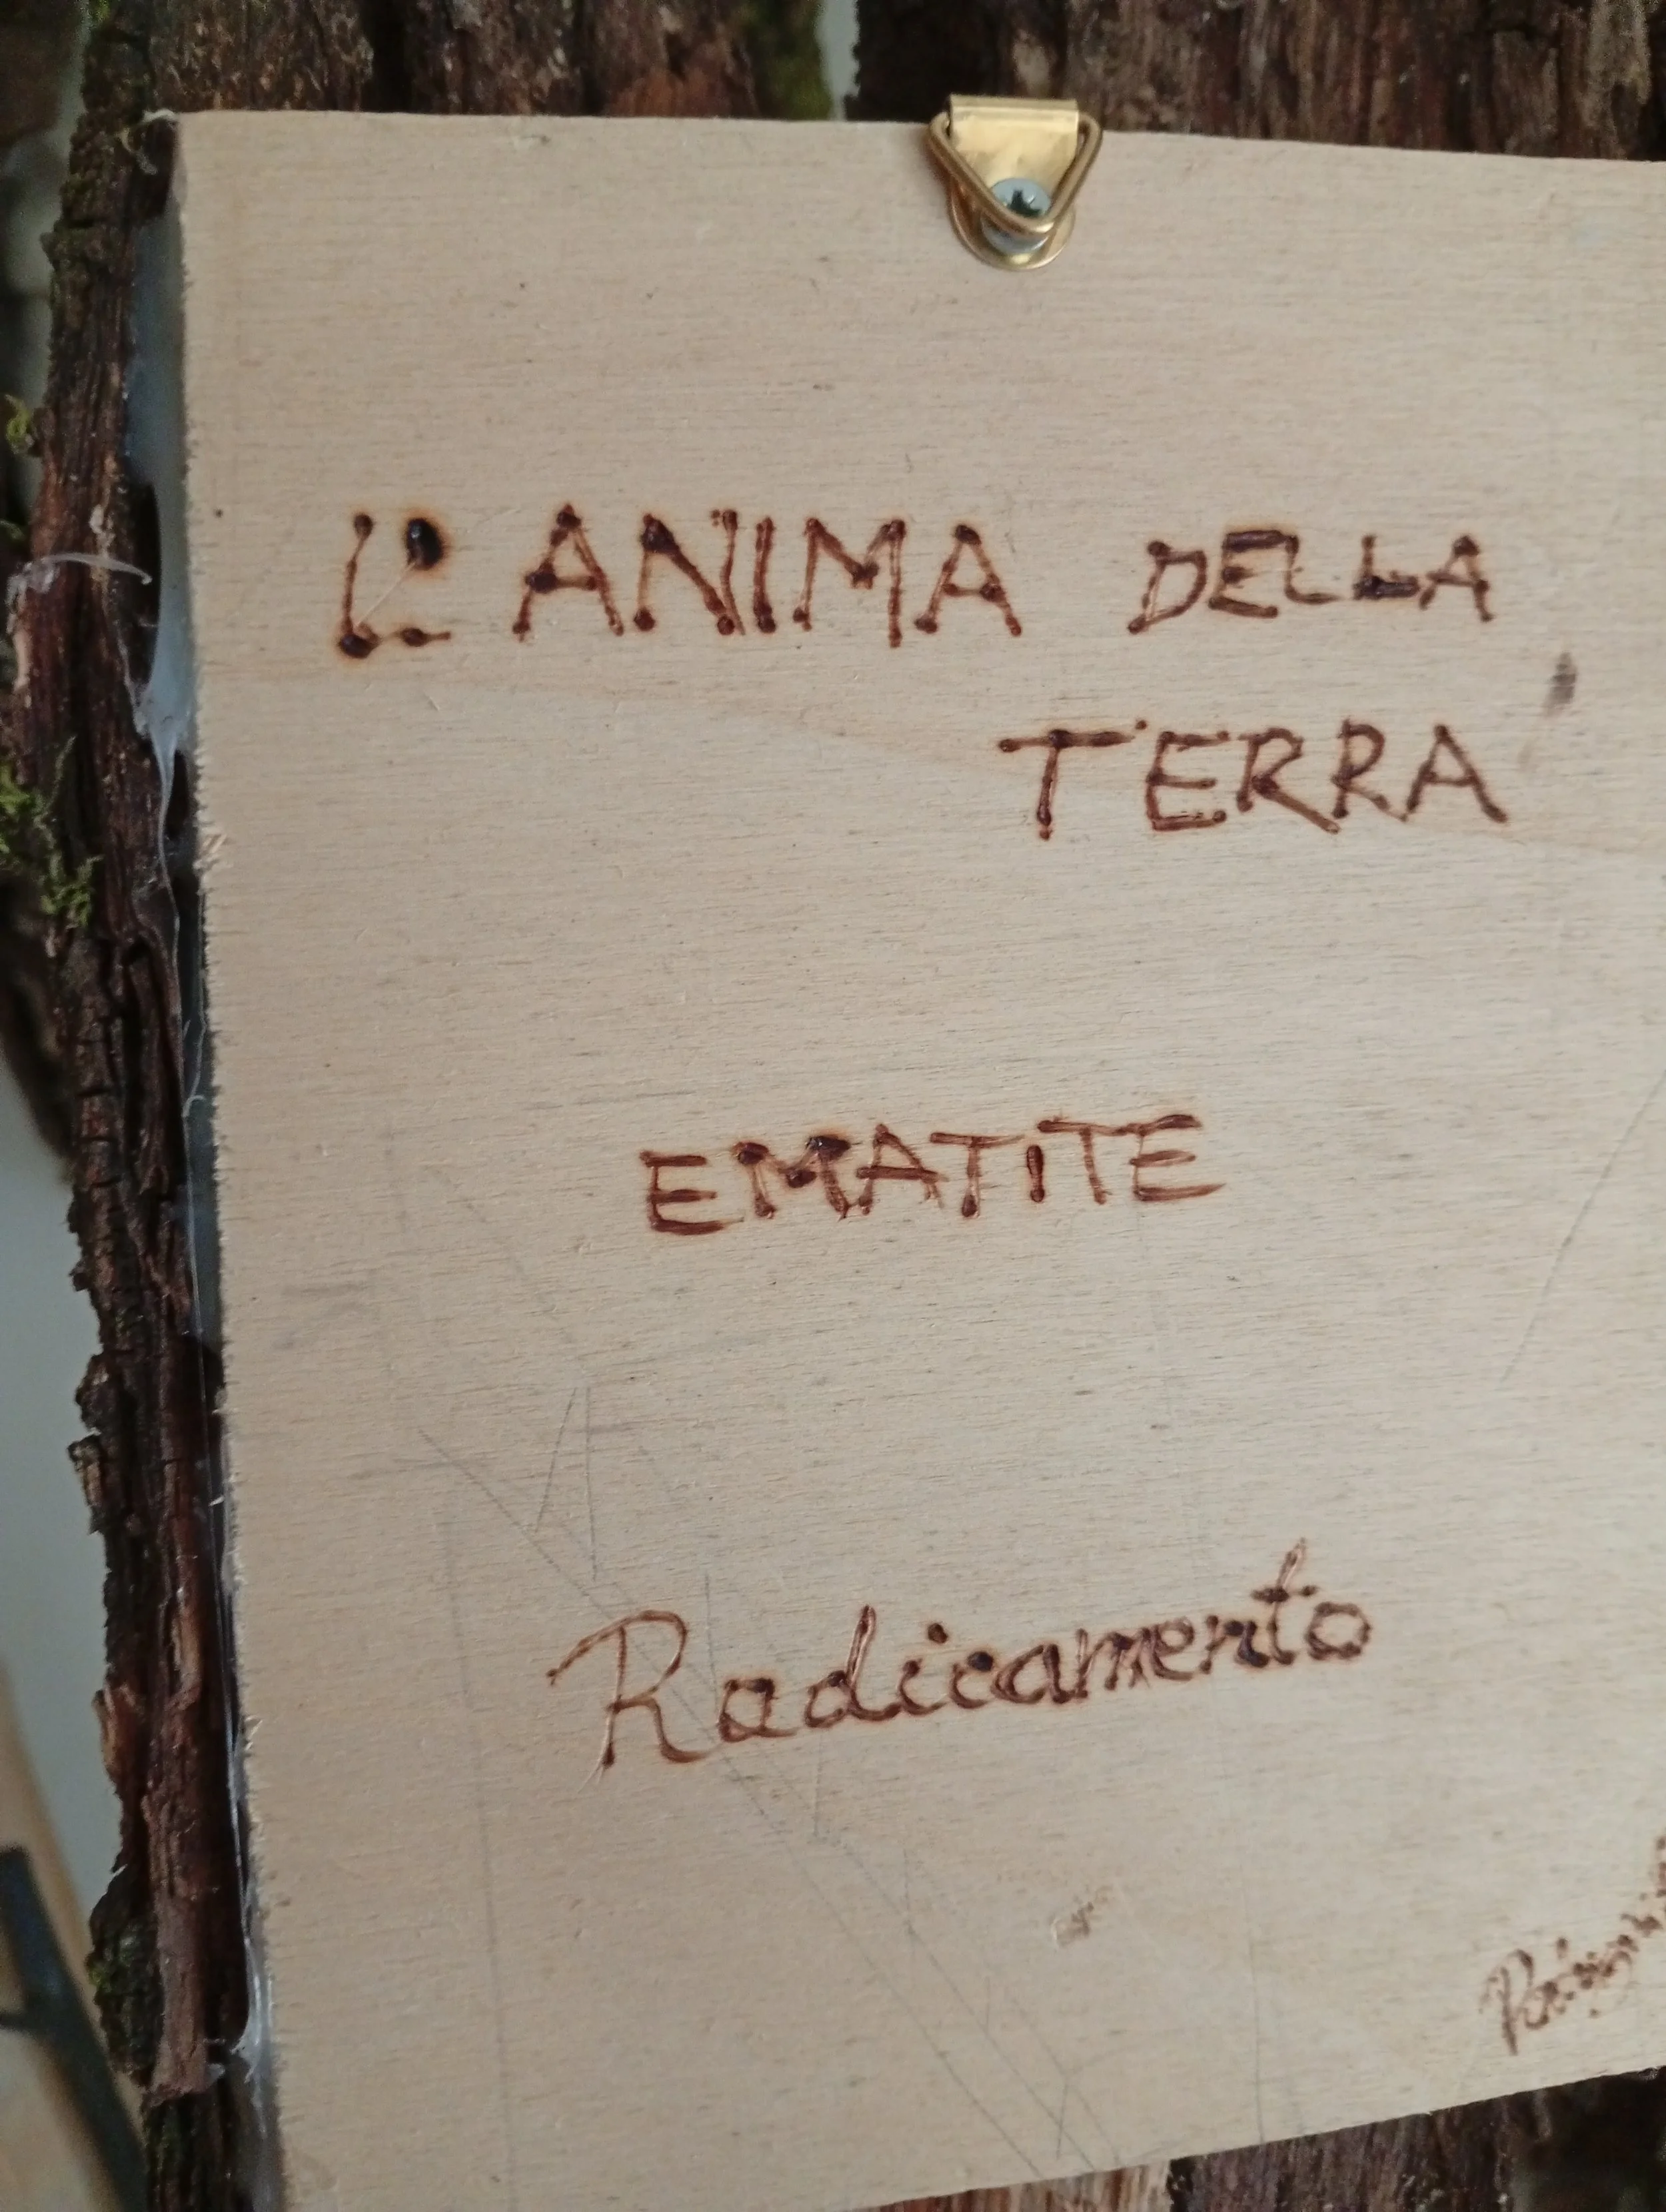 L'ANIMA DELLA
TERRA
EMATITE
Radicamento